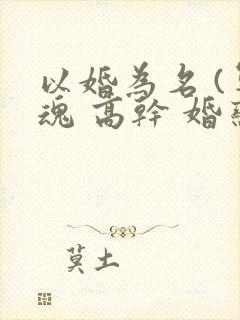 以婚為名(
魂 高幹 婚
莫土